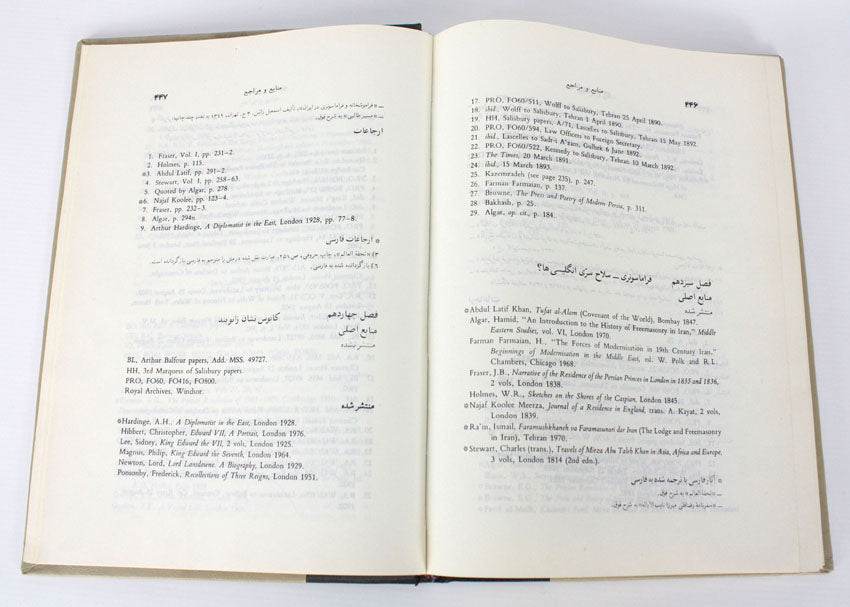 منابع و مراجع
۴۴۶
17. PRO, FO60/511, Wolff to Salisbury, Tehran 25 April 1890.
18. ibid., Wolff to Salisbury, Tehran 1 April 1890.
19. HH, Salisbury papers, A/71, Lascelles to Salisbury, Tehran 15 May 1892.
20. PRO, FO60/594, Law Officers to Foreign Secretary.
21. ibid., Lascelles to Sadr-i A'zam, Gulhek 6 June 1892.
22. PRO, FO60/522, Kennedy to Salisbury, Tehran 10 March 1892.
23. The Times, 20 March 1891.
24. ibid., 15 March 1893.
25. Kazemzadeh (see page 235), p. 247.
26. Farman Farmaian, p. 137.
27. Browne, The Press and Poetry of Modern Persia, p. 311.
28. Bakhash, p. 25.
29. Algar, op. cit., p. 184.
فصل سیزدهم فراماسونری ــ سلاح سرّی انگلیسی‌ها؟
منابع اصلی
منتشر شده
Abdul Latif Khan, Tufat al-Alam (Covenant of the World), Bombay 1847.
Algar, Hamid, "An Introduction to the History of Freemasonry in Iran," Middle
Eastern Studies, vol. VI, London 1970.
Farman Farmaian, H., "The Forces of Modernisation in 19th Century Iran,"
Beginnings of Modernisation in the Middle East, ed. W. Polk and R.L.
Chambers, Chicago 1968.
Fraser, J.B., Narrative of the Residence of the Persian Princes in London in 1835 and 1836,
2 vols, London 1838.
Holmes, W.R., Sketches on the Shores of the Caspian, London 1845.
Najaf Koolee Meerza, Journal of a Residence in England, trans. A. Kayat, 2 vols,
London 1839.
Ra'in, Ismail, Faramushkhaneh va Faramasunari dar Iran (The Lodge and Freemasonry
in Iran), Tehran 1970.
Stewart, Charles (trans.), Travels of Mirza Abu Taleb Khan in Asia, Africa and Europe,
3 vols, London 1814 (2nd edn.).
آثار فارسی یا ترجمه شده به فارسی
ــ «تحفة العالم» به شرح فوق.
ــ «سفرنامهٔ رضاقلی میرزا نایب‌الایاله» به شرح فوق.
منابع و مراجع
۴۴۷
ــ «فراموشخانه و فراماسونری در ایران»، تألیف اسمعیل رائین، ۳ ج، تهران،
ــ «مسیر طالبی» به شرح فوق.
ارجاعات
1. Fraser, Vol. I, pp. 231–2.
2. Holmes, p. 115.
3. Abdul Latif, pp. 291–2.
4. Stewart, Vol. I, pp. 258–63.
5. Quoted by Algar, p. 278.
6. Najaf Koolee, pp. 123–4.
7. Fraser, pp. 232–3.
8. Algar, p. 294n.
9. Arthur Hardinge, A Diplomatist in the East, London 1928, pp. 77–8.
ارجاعات فارسی
۳) «تحفة العالم»، چاپ حروفی، ص ۲۵۸. عبارت نقل شده در متن را مترجم به فارسی بازگردانده است.
۶) بازگردانده شده به فارسی.
فصل چهاردهم کابوس نشان زانوبند
منابع اصلی
منتشر نشده
BL, Arthur Balfour papers, Add. MSS. 49727.
HH, 3rd Marquess of Salisbury papers.
PRO, FO60, FO416, FO800.
Royal Archives, Windsor.
منتشر شده
Hardinge, A.H., A Diplomatist in the East, London 1928.
Hibbert, Christopher, Edward VII, A Portrait, London 1976.
Lee, Sidney, King Edward the VII, 2 vols, London 1925.
Magnus, Philip, King Edward the Seventh, London 1964.
Newton, Lord, Lord Lansdowne. A Biography, London 1929.
Ponsonby, Frederick, Recollections of Three Reigns, London 1951.